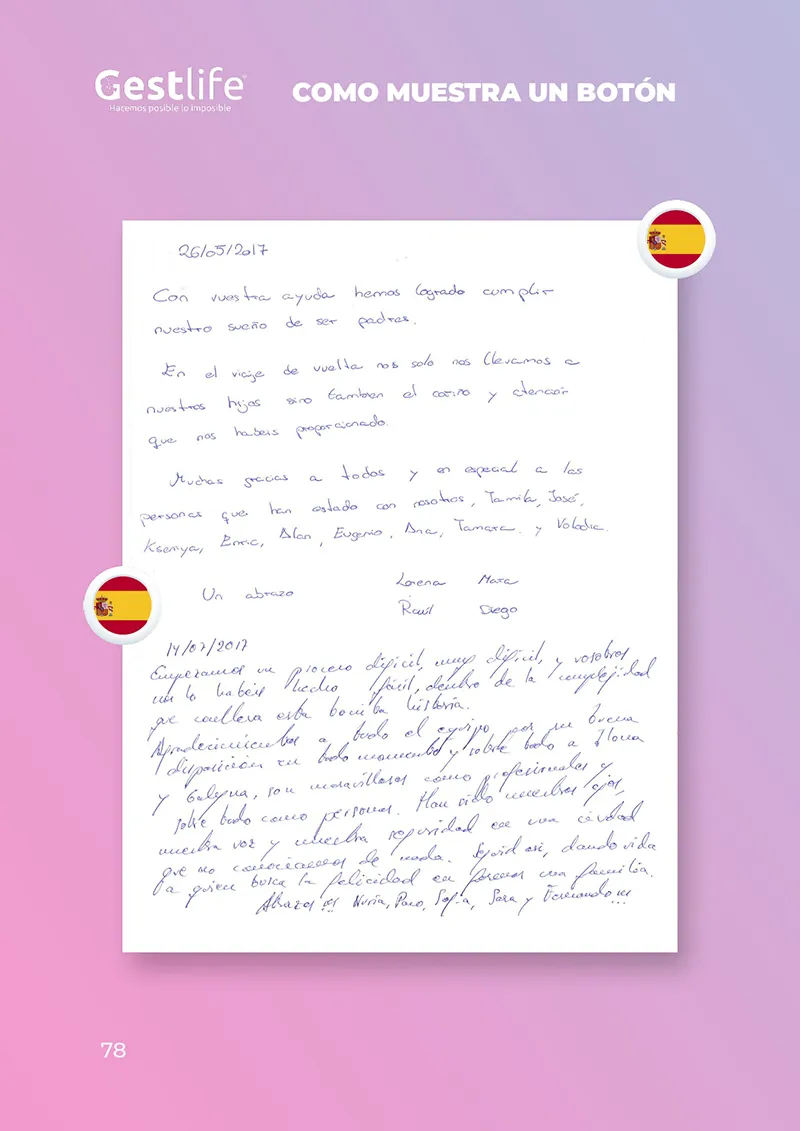 Gestlife
Hacemos posible lo imposible
COMO MUESTRA UN BOTÓN
26/05/2017
Con vuestra ayuda hemos logrado cumplir
nuestro sueño de ser padres.
En el viaje de vuelta nos solo nos llevamos a
nuestros hijos sino tambien el cariño y atención
que nos habeis proporcionado.
Muchas gracias a todos y en especial a las
personas que han estado con nosotros, Tamila, José,
Kseniya, Enric, Alan, Eugenio, Ana, Tamara y Volodia.
Un abrazo
Lorena Mara
Raúl Diego
14/07/2017
Empezamos un proceso difícil, muy difícil, y vosotros
nos lo habéis hecho fácil, dentro de la complejidad
que conlleva esta bonita historia.
Agradecimientos a todo el equipo por su buena
disposición en todo momento y sobre todo a Ilona
y Galyna, son maravillosas como profesionales y
sobre todo como personas. Han sido nuestros ojos,
nuestra voz y nuestra seguridad en una ciudad
que no conocíamos de nada. Seguid así, dando vida
a quien busca la felicidad en formar una familia.
Abrazos!!! Nuria, Paco, Sofía, Sara y Fernando!!!
78